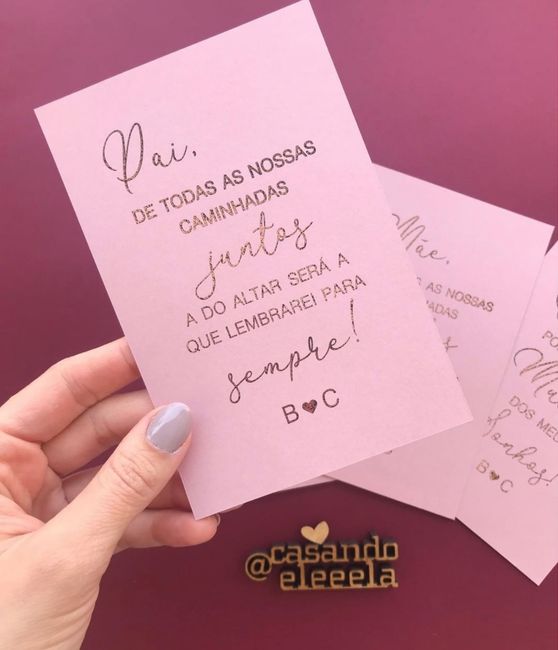 Pai,
DE TODAS AS NOSSAS
CAMINHADAS
juntos
A DO ALTAR SERÁ A
QUE LEMBRAREI PARA
sempre!
B♥C
Mãe,
AS NOSSAS
DOS
Sonhos!
B♥C
@casando
eleeela